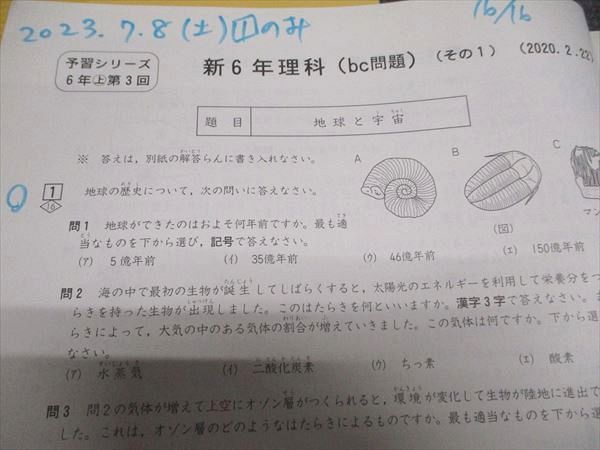 2023.7.8(土)1のみ
16/16
予習シリーズ
6年上第3回
新6年理科(bc問題)(その1)(2020.2.22)
題目 地球と宇宙
※ 答えは,別紙の解答らんに書き入れなさい。
A
B
C
1
16
地球の歴史について,次の問いに答えなさい。
(図)
マン
問1 地球ができたのはおよそ何年前ですか。最も適
当なものを下から選び,記号で答えなさい。
(ア) 5億年前 (イ) 35億年前 (ウ) 46億年前 (エ) 150億年前
問2 海の中で最初の生物が誕生してしばらくすると,太陽光のエネルギーを利用して栄養分をつ
らきを持った生物が出現しました。このはたらきを何といいますか。漢字3字で答えなさい。
らきによって,大気の中のある気体の割合が増えていきました。この気体は何ですか。下から選
なさい。
(ア) 水蒸気 (イ) 二酸化炭素 (ウ) ちっ素 (エ) 酸素
問3 問2の気体が増えて上空にオゾン層がつくられると,環境が変化して生物が陸地に進出で
した。これは,オゾン層のどのようなはたらきによるものですか。最も適当なものを下から選